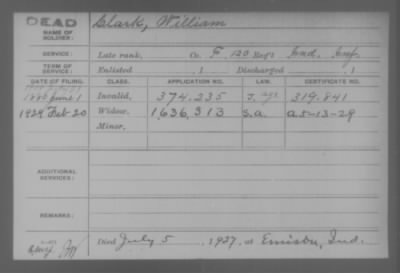 DEAD
NAME OF SOLDIER: Clark, William
SERVICE: Late rank, Co. F, 120 Reg't Ind. Inf.
TERM OF SERVICE: Enlisted , 1 Discharged , 1
DATE OF FILING. CLASS. APPLICATION NO. LAW. CERTIFICATE NO.
1880 June 1 Invalid, 374.235 J. age 319.841
1929 Feb 20 Widow, 1,636,313 S.a. a.5-13-29
Minor,
ADDITIONAL SERVICES:
REMARKS:
Died July 5, 1927, at Ind.